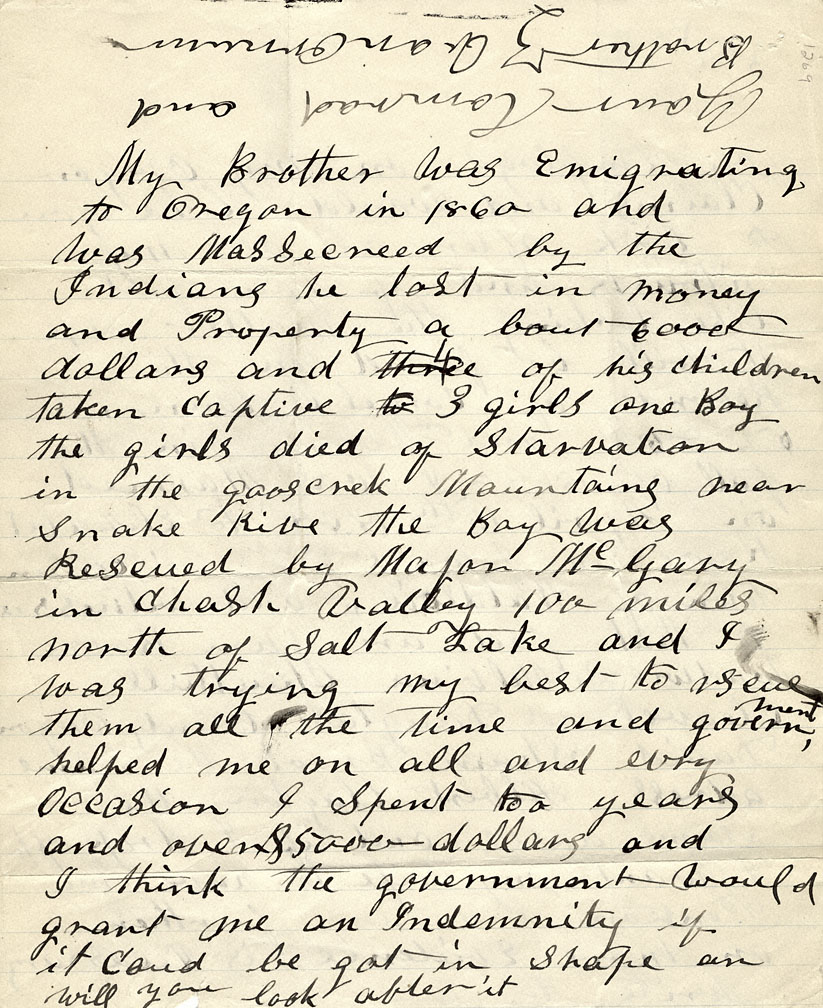 My Brother was Emigrating
to Oregon in 1860 and
was Massecreed by the
Indians he lost in money
and Property a bout 6000
dollars and three of his children
taken Captive to 3 girls one Boy
the girls died of Starvation
in the gooscrek Mountains near
Snake Rive the Boy was
Rescued by Major Mc Gary
in Chash Valley 100 miles
north of Salt Lake and I
was trying my best to rscue
them all the time and government
helped me on all and evry
occasion I Spent too years
and over $5000 dollars and
I think the government would
grant me an Indemnity if
it Coud be got in Shape an
will you look after it
Your Comrad and
Brother Z Van Ornum
1269